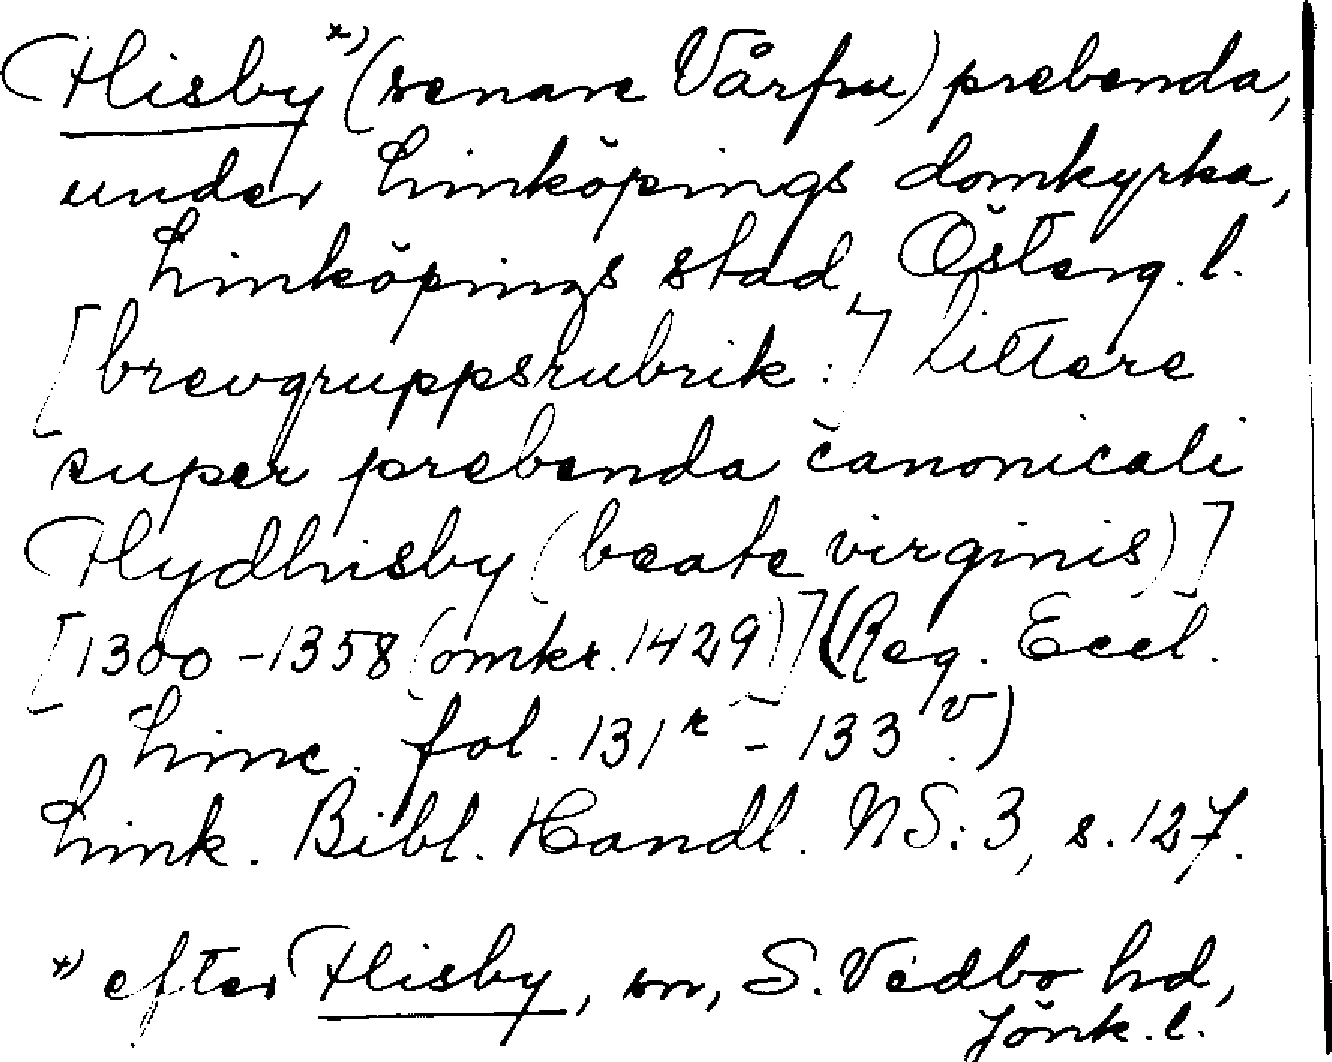 Flisby *) (senare Vårfru) prebenda,
under Linköpings domkyrka,
Linköpings stad, Österg. l.
[brevgruppsrubrik:] Littere
super prebenda canonicali
Flydhisby (beate virginis)]
[1300-1358 (omkr. 1429)] (Reg. Eccl.
Linc. fol. 131r - 133v.)
Link. Bibl. Handl. NS: 3, s. 127.
*) efter Flisby, sn, S. Vedbo hd,
Jönk. l.